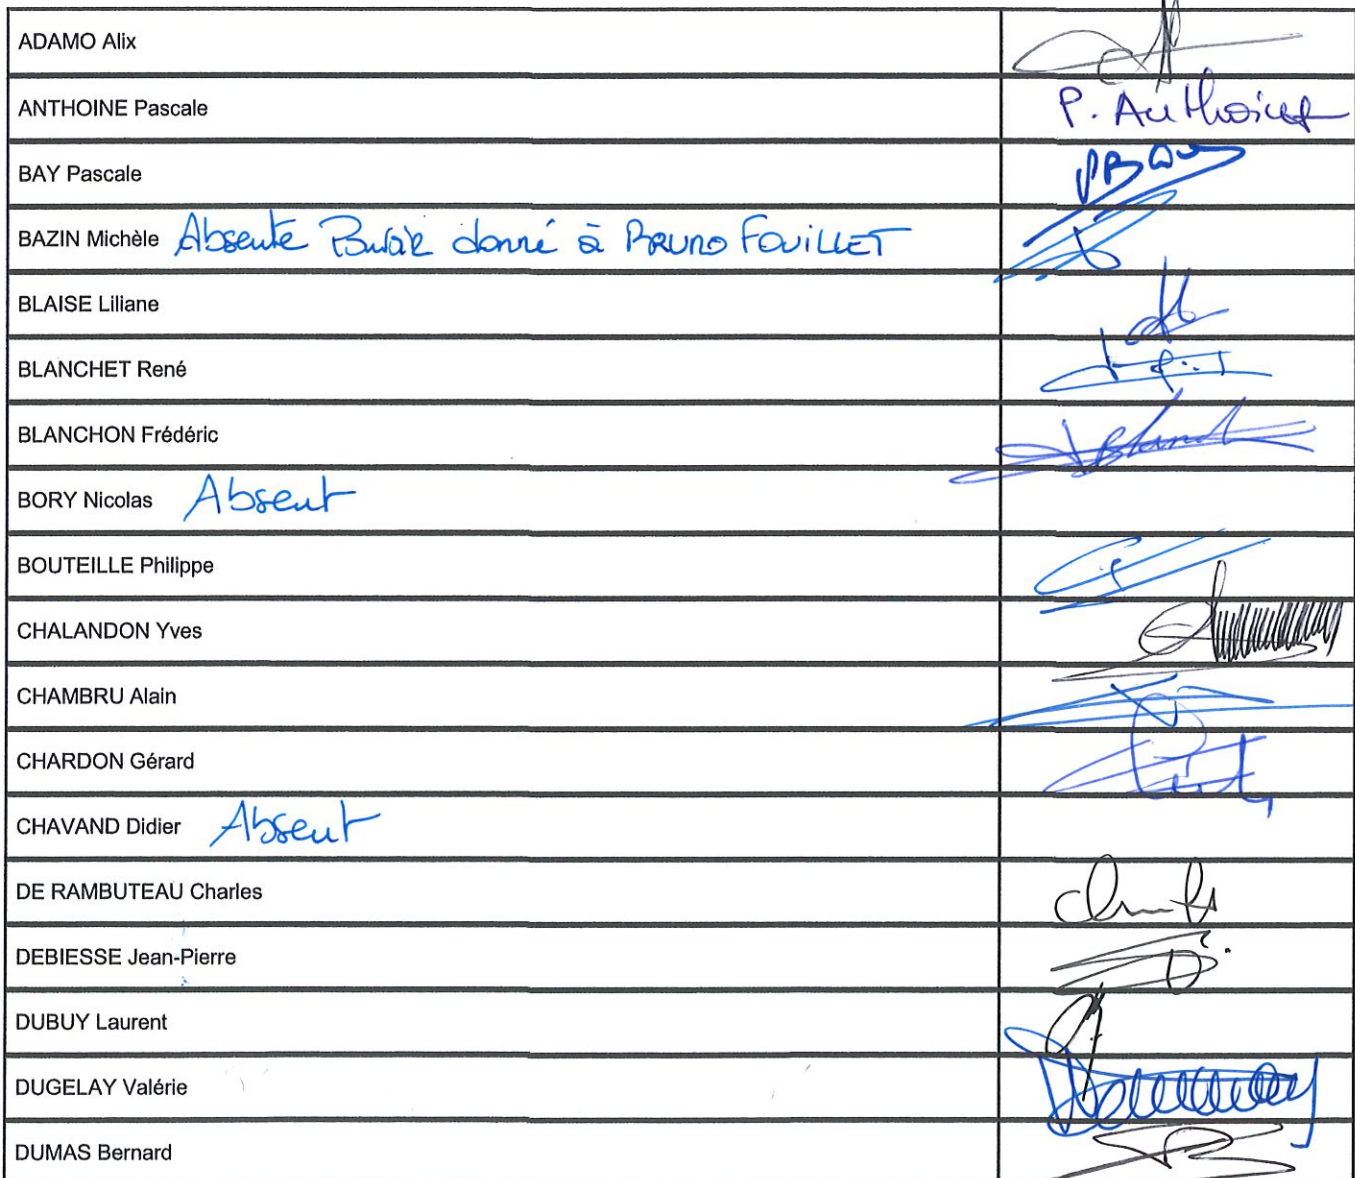 ADAMO Alix
ANTHOINE Pascale P. Anthoine
BAY Pascale
BAZIN Michèle Absente Pouvoir donné à BRUNO FOUILLET
BLAISE Liliane
BLANCHET René
BLANCHON Frédéric
BORY Nicolas Absent
BOUTEILLE Philippe
CHALANDON Yves
CHAMBRU Alain
CHARDON Gérard
CHAVAND Didier Absent
DE RAMBUTEAU Charles
DEBIESSE Jean-Pierre
DUBUY Laurent
DUGELAY Valérie
DUMAS Bernard